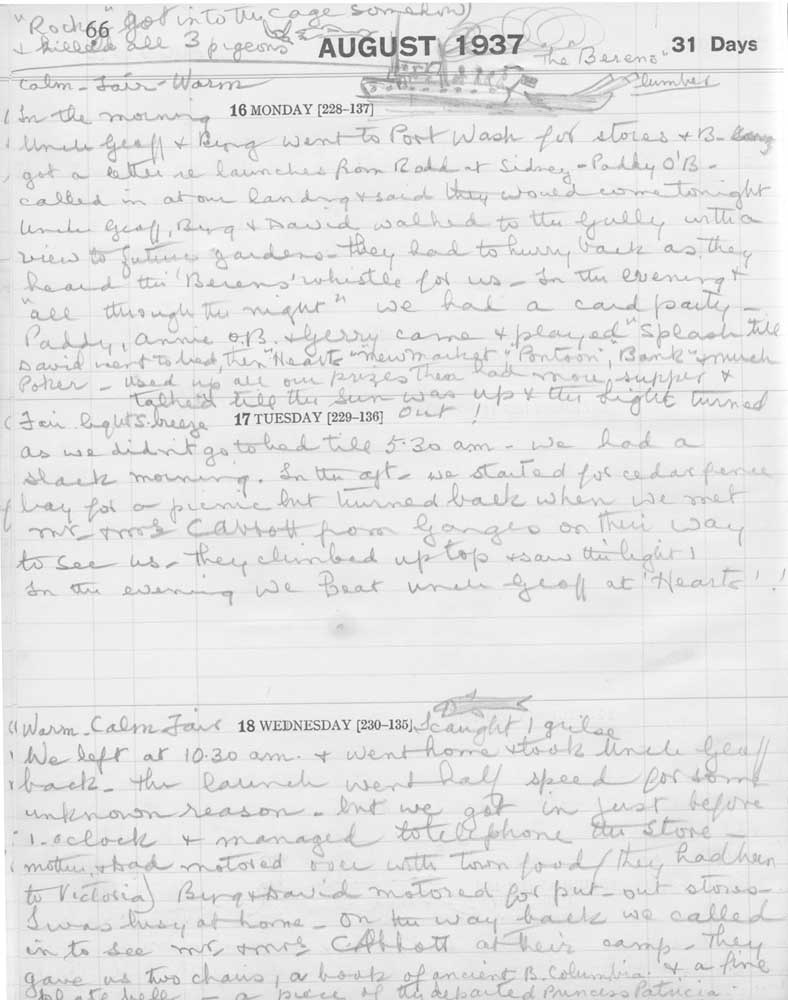 "Rocky" got into the cage somehow
& killed all 3 pigeons
66
AUGUST 1937
31 Days
"The Berens"
Lumber
Calm - Fair - Warm
16 MONDAY [228-137]
In the morning
Uncle Geoff & Berg went to Port Wash for stores & B-
got a letter re launches from Rodd at Sidney - Paddy O'B -
called in at our landing & said they would come tonight
Uncle Geoff, Berg & David walked to the Gully with a
view to future gardens - they had to hurry back as they
heard the 'Berens' whistle for us - In the evening &
"all through the night" we had a card party -
Paddy, Annie O.B. & Gerry came & played "Splash" till
David went to bed, then "Hearts" "Newmarket" "Pontoon", "Bank" & much
Poker - used up all our prizes then had more supper &
talked till the sun was up & the Light turned
out!
Fair light S. breeze
17 TUESDAY [229-136]
as we didn't go to bed till 5.30 am - we had a
slack morning. In the aft - we started for cedar fence
bay for a picnic but turned back when we met
Mr & Mrs Cabbott from Ganges on their way
to see us - they climbed up top & saw the light!
In the evening we Beat Uncle Geoff at 'Hearts'!!
Warm - Calm - Fair
18 WEDNESDAY [230-135]
I caught 1 grilse
We left at 10.30 am. & went home & took Uncle Geoff
back - the launch went half speed for some
unknown reason - but we got in just before
1. o clock & managed to telephone the Store -
Mother & Dad motored over with town food (they had been
to Victoria) Berg & David motored for put-out stores -
I was busy at home - On the way back we called
in to see Mr & Mrs Cabbott at their camp - They
gave us two chairs, a book of ancient B. Columbia & a fine
bell - a piece of the departed Princess Patricia.